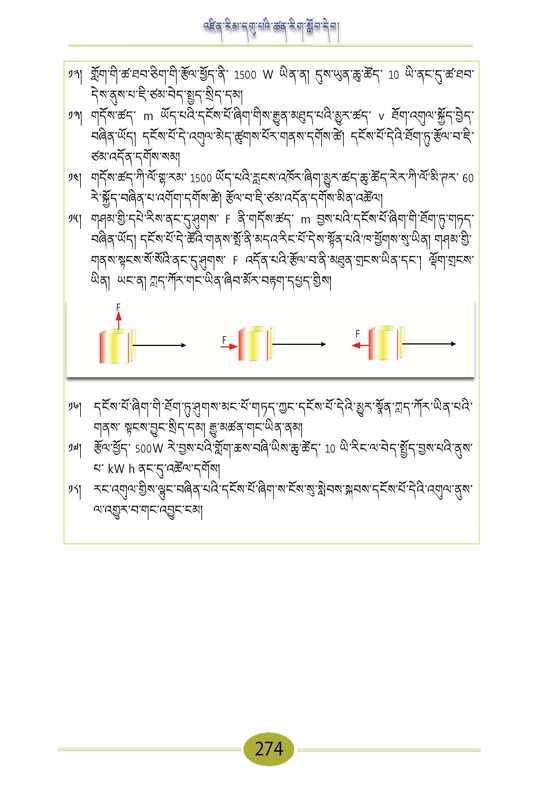 འཛིན་རིམ་དགུ་པའི་ཚན་རིག་སློབ་དེབ།
༡༢། གློག་གི་ཚ་ཐབ་ཅིག་གི་རྩོལ་ཕྱོད་ནི་ 1500 W ཡིན་ན། དུས་ཡུན་ཆུ་ཚོད་ 10 ཡི་ནང་དུ་ཚ་ཐབ་
དེས་ནུས་པ་ཇི་ཙམ་བེད་སྤྱད་སྲིད་དམ།
༡༣། གདོས་ཚད་ m ཡོད་པའི་དངོས་པོ་ཞིག་གིས་རྒྱུན་མཐུད་པའི་མྱུར་ཚད་ v ཐོག་འགུལ་སྐྱོད་བྱེད་
བཞིན་ཡོད། དངོས་པོ་དེ་འགུལ་མེད་ཚུགས་པོར་གནས་དགོས་ཚེ། དངོས་པོ་དེའི་ཐོག་ཏུ་རྩོལ་བ་ཇི་
ཙམ་འདོན་དགོས་སམ།
༡༤། གདོས་ཚད་ཀི་ལོ་གྷ་རམ་ 1500 ཡོད་པའི་རླངས་འཁོར་ཞིག་མྱུར་ཚད་ཆུ་ཚོད་རེར་ཀི་ལོ་མི་ཊར་ 60
རེ་སྐྱོད་བཞིན་པ་འགོག་དགོས་ཚེ། རྩོལ་བ་ཇི་ཙམ་འདོན་དགོས་མིན་འཚོལ།
༡༥། གཤམ་གྱི་དཔེ་རིས་ནང་དུ་ཤུགས་ F ནི་གདོས་ཚད་ m བྱས་པའི་དངོས་པོ་ཞིག་གི་ཐོག་ཏུ་གཏད་
བཞིན་ཡོད། དངོས་པོ་དེ་ཚོའི་གནས་སྤོ་ནི་མདའ་རིང་པོ་དེས་སྟོན་པའི་ཁ་ཕྱོགས་སུ་ཡིན། གཤམ་གྱི་
གནས་སྟངས་སོ་སོའི་ནང་དུ་ཤུགས་ F འདོན་པའི་རྩོལ་བ་ནི་མཐུན་གྲངས་ཡིན་དང་། ལྡོག་གྲངས་
ཡིན། ཡང་ན། ཀླད་ཀོར་གང་ཡིན་ཞིབ་མོར་བརྟག་དཔྱད་གྱིས།
F
F
F
༡༦། དངོས་པོ་ཞིག་གི་ཐོག་ཏུ་ཤུགས་མང་པོ་གཏད་ཀྱང་དངོས་པོ་དེའི་མྱུར་སྣོན་ཀླད་ཀོར་ཡིན་པའི་
གནས་ སྟངས་བྱུང་སྲིད་དམ། རྒྱུ་མཚན་གང་ཡིན་ནམ།
༡༧། རྩོལ་ཕྱོད་ 500W རེ་བྱས་པའི་གློག་ཆས་བཞི་ཡིས་ཆུ་ཚོད་ 10 ཡི་རིང་ལ་བེད་སྤྱོད་བྱས་པའི་ནུས་
པ་ kW h ནང་དུ་འཚོལ་དགོས།
༡༨། རང་འགུལ་གྱིས་ལྷུང་བཞིན་པའི་དངོས་པོ་ཞིག་ས་ངོས་སུ་སླེབས་སྐབས་དངོས་པོ་དེའི་འགུལ་ནུས་
ལ་འགྱུར་བ་གང་འབྱུང་ངམ།
274